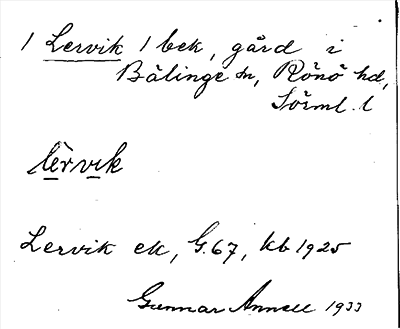 1 Lervik 1 bek, gård i
Bälinge sn, Rönö hd,
Sörml. l
lèrvik
Lervik ek, G.67, kb 1925
Gunnar Annell 1933